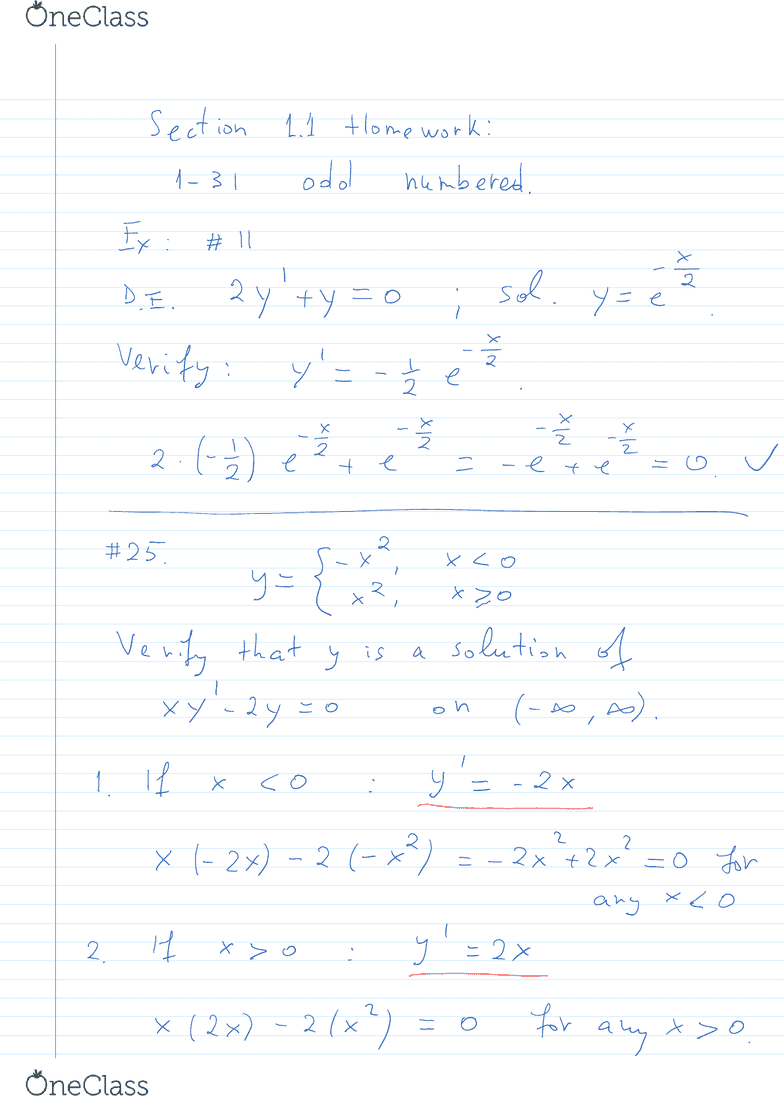 OneClass
Section 1.1 Homework:
1-31 odd numbered.
Ex: #11
D.E. 2y' + y = 0 ; sol. y = e^{-x/2}.
Verify: y' = -1/2 e^{-x/2}.
2·(-1/2) e^{-x/2} + e^{-x/2} = -e^{-x/2} + e^{-x/2} = 0. ✓
#25. y = { -x², x < 0
x², x ≥ 0
Verify that y is a solution of
xy' - 2y = 0 on (-∞, ∞).
1. If x < 0 : y' = -2x
x(-2x) - 2(-x²) = -2x² + 2x² = 0 for
any x < 0
2. If x > 0 : y' = 2x
x(2x) - 2(x²) = 0 for any x > 0.
OneClass